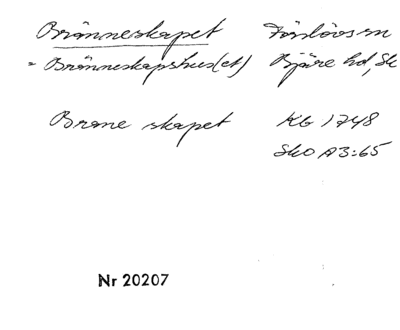 Bränneskapet Förslövs sn
= Bränneskapshus(et) Bjäre hd, Sk
Brane skapet KB 1748
Sko A3:65
Nr 20207